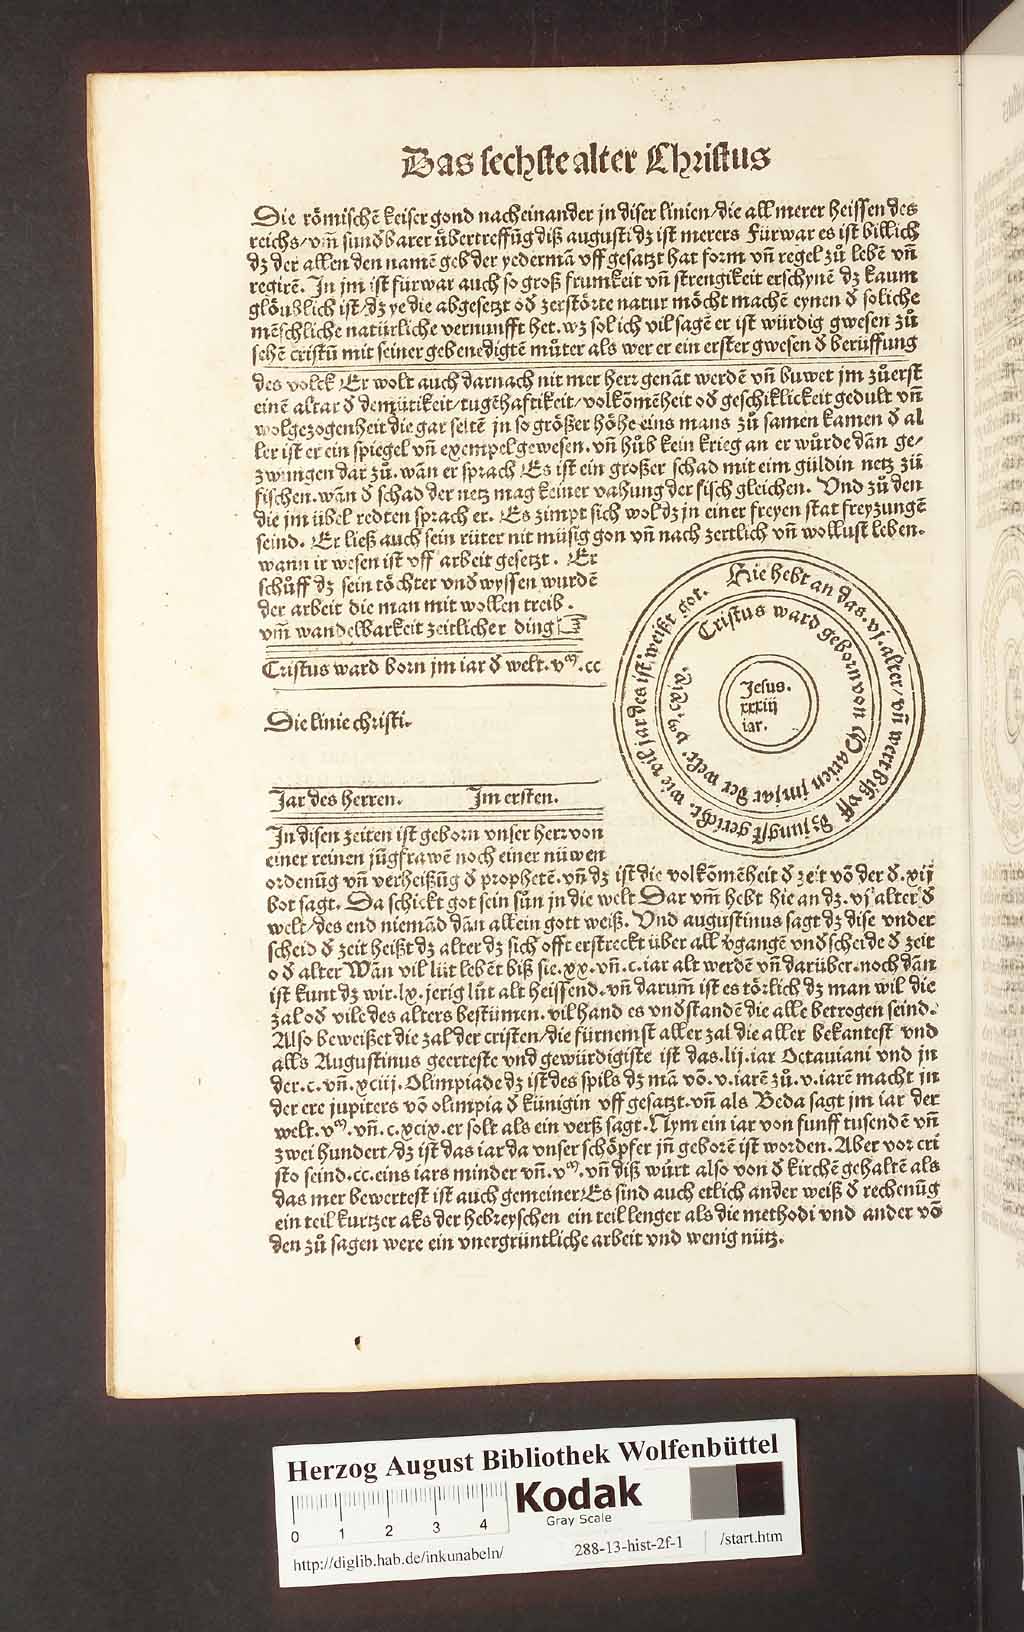 Das sechste alter Christus
Die römischē keiser gond nacheinander jn diser linien/die all merer heissen des
reichs/vm̄ sunđbarer übertreffūg diß augusti dz ist merers Fürwar es ist billich
dz der allen den namē geb der yedermā vff gesatzt hat form vn̄ regel zů lebē vn̄
regirē. In jm ist fürwar auch so groß frumkeit vn̄ strengikeit erschynē dz kaum
glöublich ist/dz ye die abgesetzt ođ zerstörte natur möcht machē eynen đ soliche
mēschliche natürliche vernunfft het. wz sol ich vil sagē er ist würdig gwesen zů
sehē cristū mit seiner gebenedigtē můter als wer er ein erster gwesen đ berüffung
des volck Er wolt auch darnach nit mer herr genāt werdē vn̄ buwet jm zůerst
einē altar đ demütikeit/tugēhaftikeit/volkōmēheit ođ geschiklickeit gedult vn̄
wolgezogenheit die gar seltē jn so größer höhe eins mans zů samen kamen đ al
ler ist er ein spiegel vn̄ exempel gewesen. vn̄ hůb kein krieg an er wůrde dān ge/
zwungen dar zů. wān er sprach Es ist ein großer schad mit eim güldin netz zů
fischen. wān đ schad der netz mag keiner vahung der fisch gleichen. Vnd zů den
die jm übel redten sprach er. Es zimpt sich wol dz jn einer freyen stat frey zungē
seind. Er ließ auch sein rüter nit müsig gon vn̄ nach zertlich vn̄ wollust leben.
wann ir wesen ist vff arbeit gesetzt. Er
schůff dz sein töchter vnd wyssen wurdē
der arbeit die man mit wollen treib.
vm̄ wandelbarkeit zeitlicher ding
Cristus ward born jm iar đ welt. vᵐ. cc
Die linie christi.
Hie hebt an das. vj. alter/vn̄ wert biß vff dz jungst gericht. wie vil jar des ist, weißt got.
Cristus ward geborn von Marien jm jar der welt.
Jesus.
xxxiij
iar.
Jar des herren. Jm ersten.
In disen zeiten ist geborn vnser herr von
einer reinen jūgfrawē noch einer nüwen
ordenūg vn̄ verheißūg đ prophetē. vn̄ dz ist die volkōmēheit đ zeit vō der đ. xij
bot sagt. Da schickt got sein sůn jn die welt Dar vm̄ hebt hie an dz. vj alter đ
welt/des end niemād dān allein gott weiß. Vnd augustinus sagt dz dise vnder
scheid đ zeit heißt dz alter dz sich offt erstreckt über all vgangē vnđscheide đ zeit
ođ alter Wān vil lüt lebēt biß sie. xx. vn̄. c. iar alt werdē vn̄ darüber. noch dān
ist kunt dz wir. lx. jerig lüt alt heissend. vn̄ darum̄ ist es törlich dz man wil die
zal ođ vile des alters bestümen. vil hand es vnđstandē die alle betrogen seind.
Also beweißet die zal der cristen/die fürnemst aller zal die aller bekantest vnd
alls Augustinus geerteste vnd gewürdigiste ist das. lij. iar Octauiani vnd jn
der. c. vn̄. xciij. Olimpiade dz ist des spils dz mā vō. v. iarē zů. v. iarē macht jn
der ere jupiters vō olimpia đ künigin vff gesatzt. vn̄ als Beda sagt jm iar der
welt. vᵐ. vn̄. c. xcix. er solt als ein verß sagt. Nym ein iar von funff tusendē vn̄
zwei hundert/dz ist das iar da vnser schöpfer jn̄ geborē ist worden. Aber vor cri
sto seind. cc. eins iars minder vn̄. vᵐ. vn̄ diß würt also von đ kirchē gehaltē als
das mer bewertest ist auch gemeiner Es sind auch etlich ander weiß đ rechenūg
ein teil kurtzer aks der hebreyschen ein teil lenger als die methodi vnd ander vō
den zů sagen were ein vnergrüntliche arbeit vnd wenig nütz.
Herzog August Bibliothek Wolfenbüttel
0 1 2 3 4
Kodak
Gray Scale
http://diglib.hab.de/inkunabeln/ 288-13-hist-2f-1 /start.htm